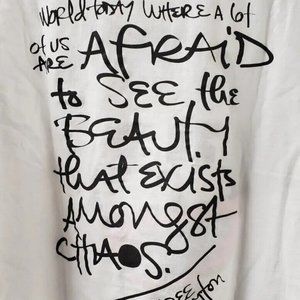 WORLD today WHERE A lot
of US
ARE AFRAID
to SEE the
BEAUTY
that EXISTS
AMONGST
CHAOS.